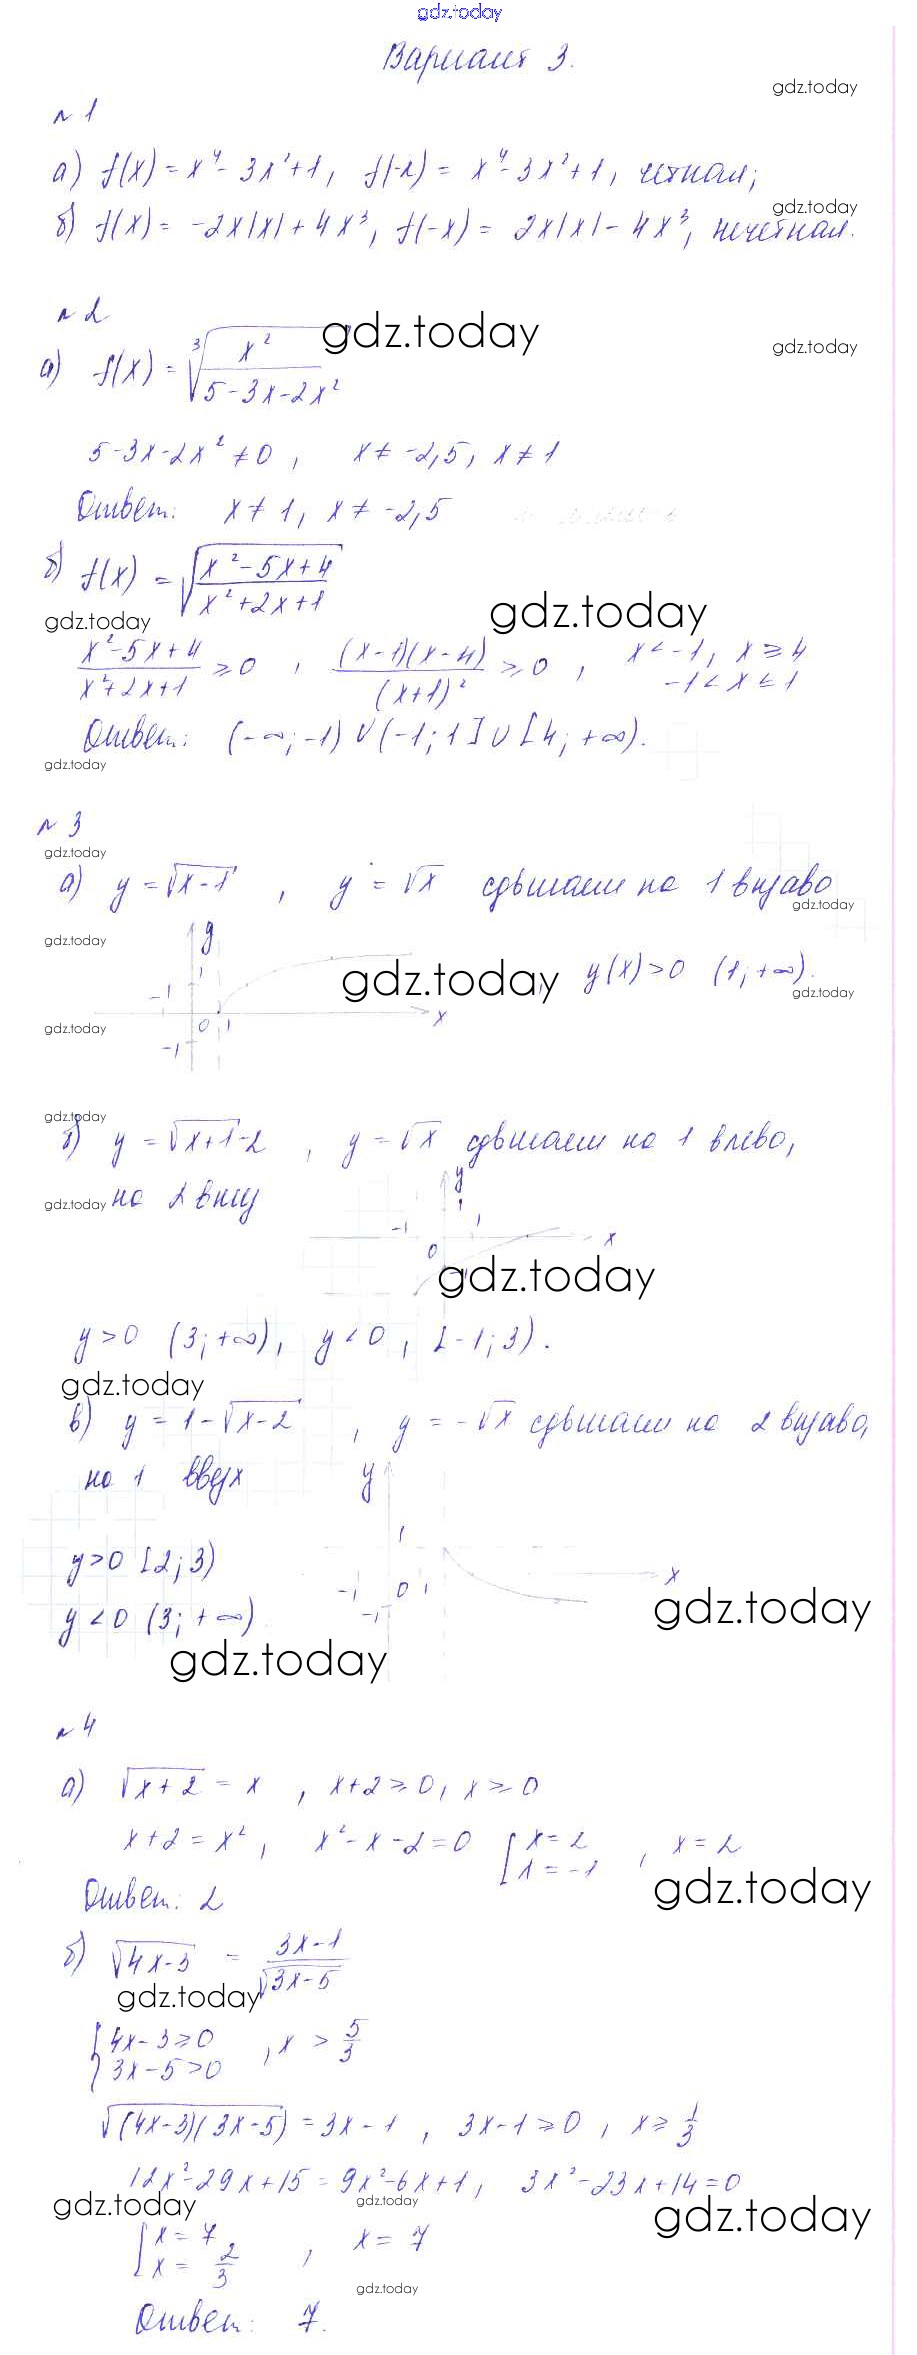 gdz.today
Вариант 3.
gdz.today
№1
а) f(x) = x⁴ - 3x² + 1, f(-x) = x⁴ - 3x² + 1, четная;
gdz.today
б) f(x) = -2x|x| + 4x³, f(-x) = 2x|x| - 4x³, нечетная.
№2
gdz.today
gdz.today
а) f(x) = ∛(x² / (5-3x-2x²))
5-3x-2x² ≠ 0, x ≠ -2,5, x ≠ 1
Ответ: x ≠ 1, x ≠ -2,5
б) f(x) = √((x²-5x+4) / (x²+2x+1))
gdz.today
gdz.today
(x²-5x+4) / (x²+2x+1) ≥ 0, (x-1)(x-4) / (x+1)² ≥ 0, x < -1, x ≥ 4
-1 < x ≤ 1
Ответ: (-∞;-1) ∪ (-1;1] ∪ [4;+∞).
gdz.today
№3
gdz.today
а) y = √(x-1), y = √x сдвигаем на 1 вправо
gdz.today
gdz.today
y
1
gdz.today
y(x) > 0 (1;+∞).
gdz.today
-1
0 1 x
gdz.today
-1
gdz.today
б) y = √(x+1) - 2, y = √x сдвигаем на 1 влево,
gdz.today
на 2 вниз
y
1
-1 1
0 x
gdz.today
-1
y > 0 (3;+∞), y < 0, [-1;3).
gdz.today
в) y = 1 - √(x-2), y = -√x сдвигаем на 2 вправо,
на 1 вверх
y
1
y > 0 [2;3)
-1 0 1 x
y < 0 (3;+∞).
-1
gdz.today
gdz.today
№4
а) √(x+2) = x, x+2 ≥ 0, x ≥ 0
x+2 = x², x²-x-2 = 0 [x = 2
x = -1, x = 2
gdz.today
Ответ: 2
б) √(4x-3) = (3x-1) / √(3x-5)
gdz.today
{4x-3 ≥ 0
3x-5 > 0, x > 5/3
√((4x-3)(3x-5)) = 3x-1, 3x-1 ≥ 0, x ≥ 1/3
12x²-29x+15 = 9x²-6x+1, 3x²-23x+14 = 0
gdz.today
gdz.today
gdz.today
[x = 7
x = 2/3, x = 7
gdz.today
Ответ: 7.